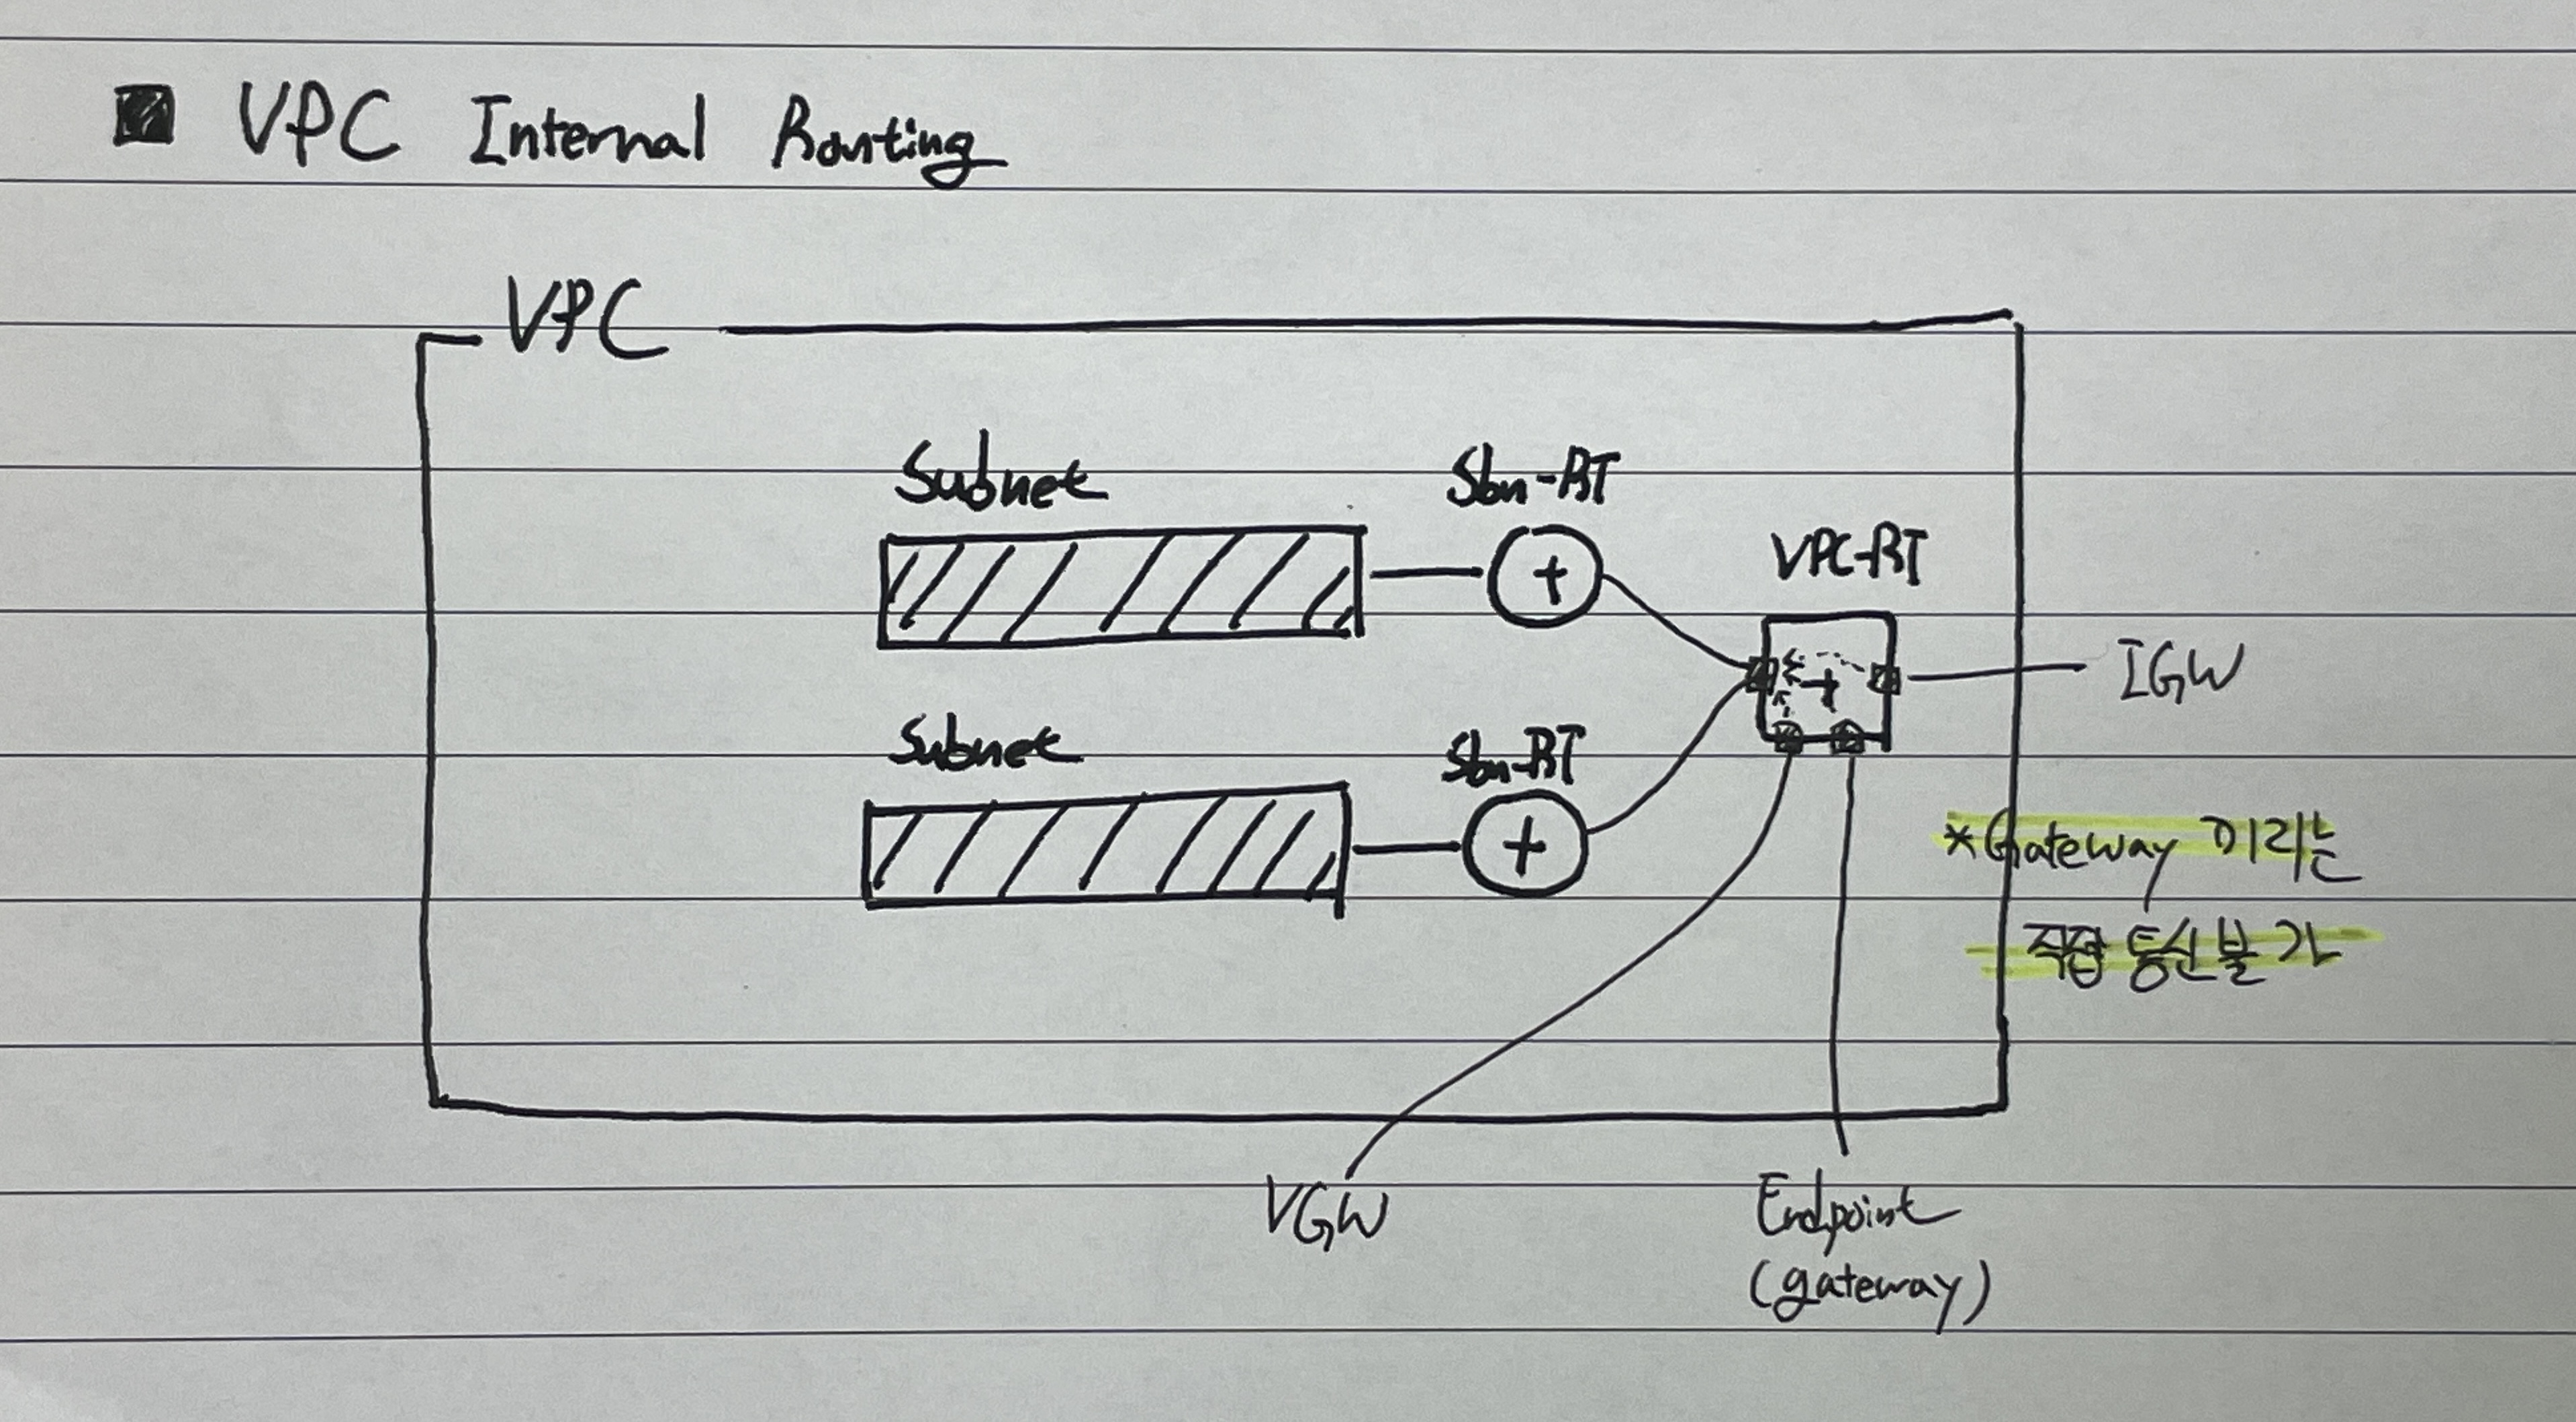 VPC Internal Routing
VPC
Subnet
Sbn-RT
VPC-RT
IGW
Subnet
Sbn-RT
*Gateway 끼리는
직접 통신 불가
VGW
Endpoint
(gateway)